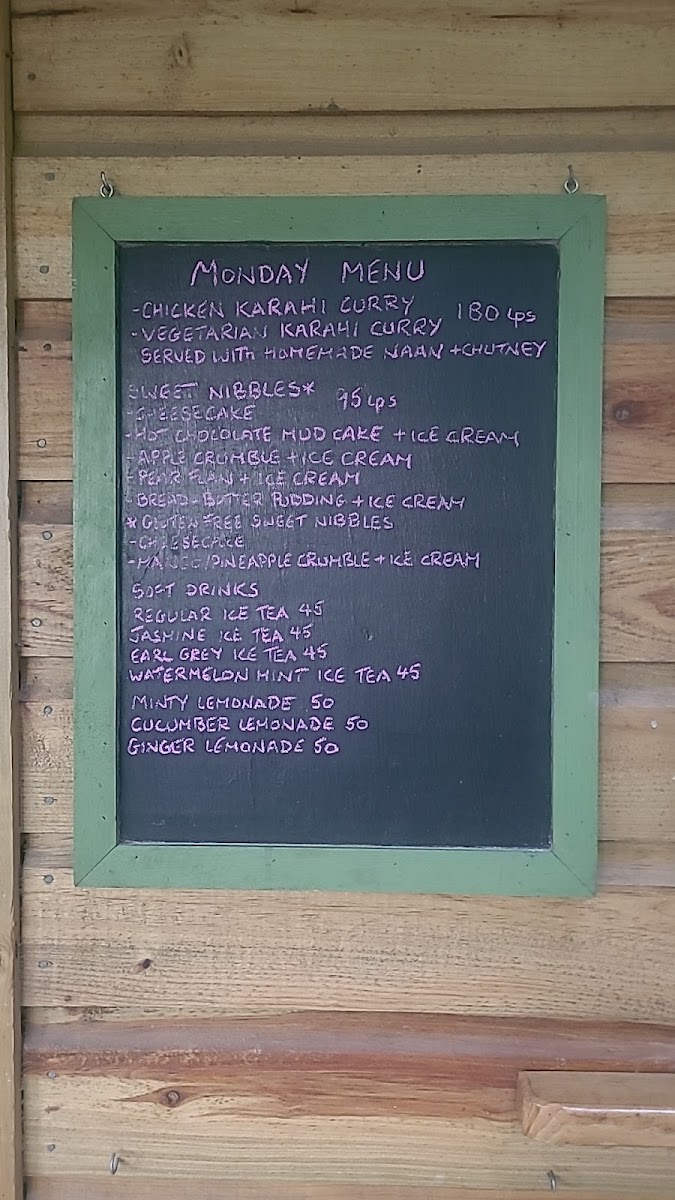 MONDAY MENU
-CHICKEN KARAHI CURRY 180 Lps
-VEGETARIAN KARAHI CURRY
SERVED WITH HOMEMADE NAAN + CHUTNEY
SWEET NIBBLES* 95 Lps
-CHEESECAKE
-HOT CHOCOLATE MUD CAKE + ICE CREAM
-APPLE CRUMBLE + ICE CREAM
-PEAR FLAN + ICE CREAM
-BREAD + BUTTER PUDDING + ICE CREAM
*GLUTEN FREE SWEET NIBBLES
-CHEESECAKE
-MANGO/PINEAPPLE CRUMBLE + ICE CREAM
SOFT DRINKS
REGULAR ICE TEA 45
JASMINE ICE TEA 45
EARL GREY ICE TEA 45
WATERMELON MINT ICE TEA 45
MINTY LEMONADE 50
CUCUMBER LEMONADE 50
GINGER LEMONADE 50